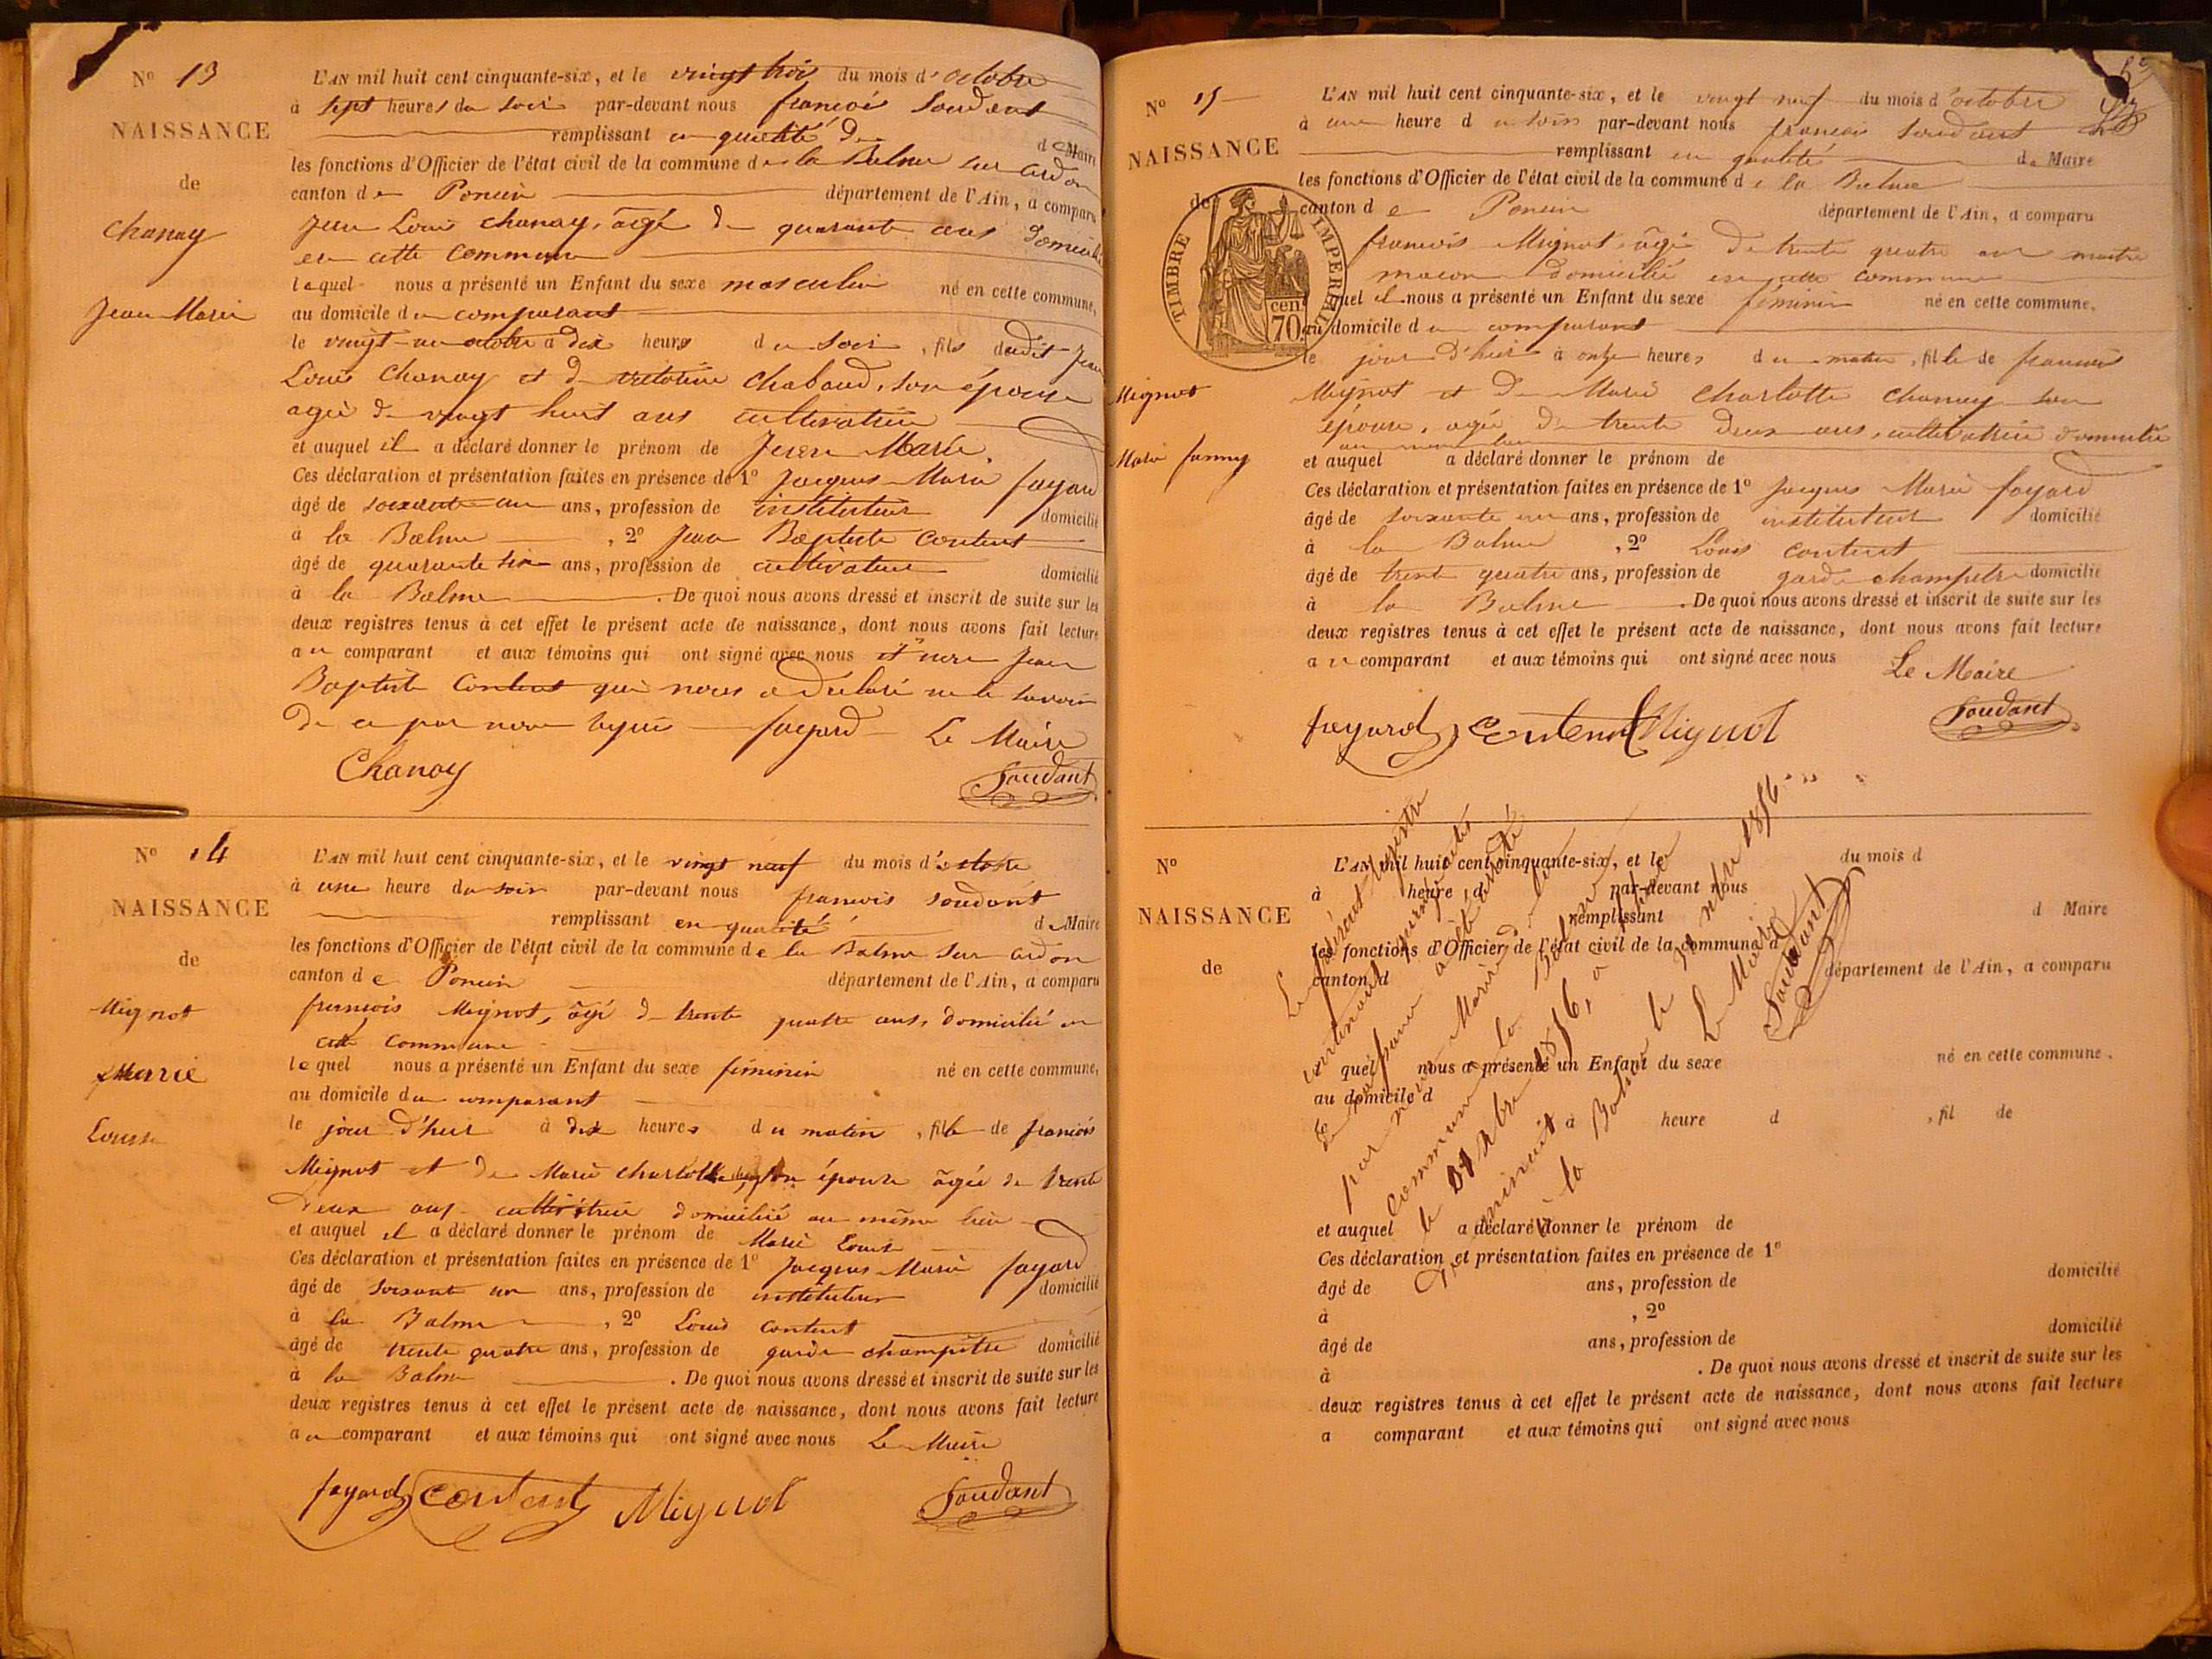 N° 13
NAISSANCE
de
Chanay
Jean Marie
L'AN mil huit cent cinquante-six, et le vingt trois du mois d'octobre
à sept heures du soir par-devant nous françois Soudant
remplissant en qualité de d Maire
les fonctions d'Officier de l'état civil de la commune de la Balme sur Cerdon
canton de Poncin département de l'Ain, a comparu
Jean Louis Chanay, âgé de quarante ans domicilié
en cette commune
lequel nous a présenté un Enfant du sexe masculin né en cette commune,
au domicile du comparant
le vingt-un octobre à dix heures du soir, fils dudit Jean
Louis Chanay et de victorine Chabaud, son épouse
agée de vingt huit ans cultivatrice
et auquel il a déclaré donner le prénom de Jean Marie.
Ces déclaration et présentation faites en présence de 1° Jacques Marie fayard
âgé de soixante un ans, profession de instituteur domicilié
à la Balme, 2° Jean Baptiste Content
âgé de quarante six ans, profession de cultivateur domicilié
à la Balme. De quoi nous avons dressé et inscrit de suite sur les
deux registres tenus à cet effet le présent acte de naissance, dont nous avons fait lecture
au comparant et aux témoins qui ont signé avec nous et non Jean
Baptiste Content qui nous a déclaré ne le savoir
de ce par nous requis fayard Le Maire
Chanay Soudant
N° 14
NAISSANCE
de
Mignot
Marie
Louise
L'AN mil huit cent cinquante-six, et le vingt neuf du mois d'octobre
à une heure du soir par-devant nous françois Soudant
remplissant en qualité de Maire
les fonctions d'Officier de l'état civil de la commune de la Balme sur Cerdon
canton de Poncin département de l'Ain, a comparu
françois Mignot, âgé de trente quatre ans, domicilié en
cette commune
lequel nous a présenté un Enfant du sexe féminin né en cette commune,
au domicile du comparant
le jour d'hier à dix heures du matin, fille de françois
Mignot et de Marie Charlotte son épouse âgée de trente
deux ans cultivatrice domiciliée au même lieu
et auquel il a déclaré donner le prénom de Marie Louise
Ces déclaration et présentation faites en présence de 1° Jacques Marie fayard
âgé de soixante un ans, profession de instituteur domicilié
à la Balme, 2° Louis Content
âgé de trente quatre ans, profession de garde champêtre domicilié
à la Balme. De quoi nous avons dressé et inscrit de suite sur les
deux registres tenus à cet effet le présent acte de naissance, dont nous avons fait lecture
au comparant et aux témoins qui ont signé avec nous Le Maire
fayard Content Mignot Soudant
N° 15
NAISSANCE
de
TIMBRE IMPERIAL
70 cent
Mignot
Marie fanny
L'AN mil huit cent cinquante-six, et le vingt neuf du mois d'octobre
à une heure du soir par-devant nous françois Soudant
remplissant en qualité de Maire
les fonctions d'Officier de l'état civil de la commune de la Balme
canton de Poncin département de l'Ain, a comparu
françois Mignot, âgé de trente quatre ans maitre
macon domicilié en cette commune
quel il nous a présenté un Enfant du sexe féminin né en cette commune,
au domicile du comparant
le jour d'hier à onze heures du matin, fille de françois
Mignot et de Marie Charlotte Chanay son
épouse, agée de trente deux ans, cultivatrice domiciliée
au même lieu
et auquel a déclaré donner le prénom de
Ces déclaration et présentation faites en présence de 1° Jacques Marie fayard
âgé de soixante un ans, profession de instituteur domicilié
à la Balme, 2° Louis Content
âgé de trente quatre ans, profession de garde champêtre domicilié
à la Balme. De quoi nous avons dressé et inscrit de suite sur les
deux registres tenus à cet effet le présent acte de naissance, dont nous avons fait lecture
au comparant et aux témoins qui ont signé avec nous Le Maire
fayard Content Mignot Soudant
N°
NAISSANCE
de
L'AN mil huit cent cinquante-six, et le du mois d
à heure d par-devant nous
remplissant d Maire
les fonctions d'Officier de l'état civil de la commune d
canton d département de l'Ain, a comparu
quel nous a présenté un Enfant du sexe né en cette commune,
au domicile d
le à heure d, fil de
et auquel a déclaré donner le prénom de
Ces déclaration et présentation faites en présence de 1°
âgé de ans, profession de domicilié
à, 2°
âgé de ans, profession de domicilié
à. De quoi nous avons dressé et inscrit de suite sur les
deux registres tenus à cet effet le présent acte de naissance, dont nous avons fait lecture
a comparant et aux témoins qui ont signé avec nous
Le présent registre
contenant quinze actes
de naissance a été arrêté
par nous Maire de la
commune de la Balme
le 31 Xbre 1856, à
minuit
à la Balme le 31 Xbre 1856
Le Maire
Soudant